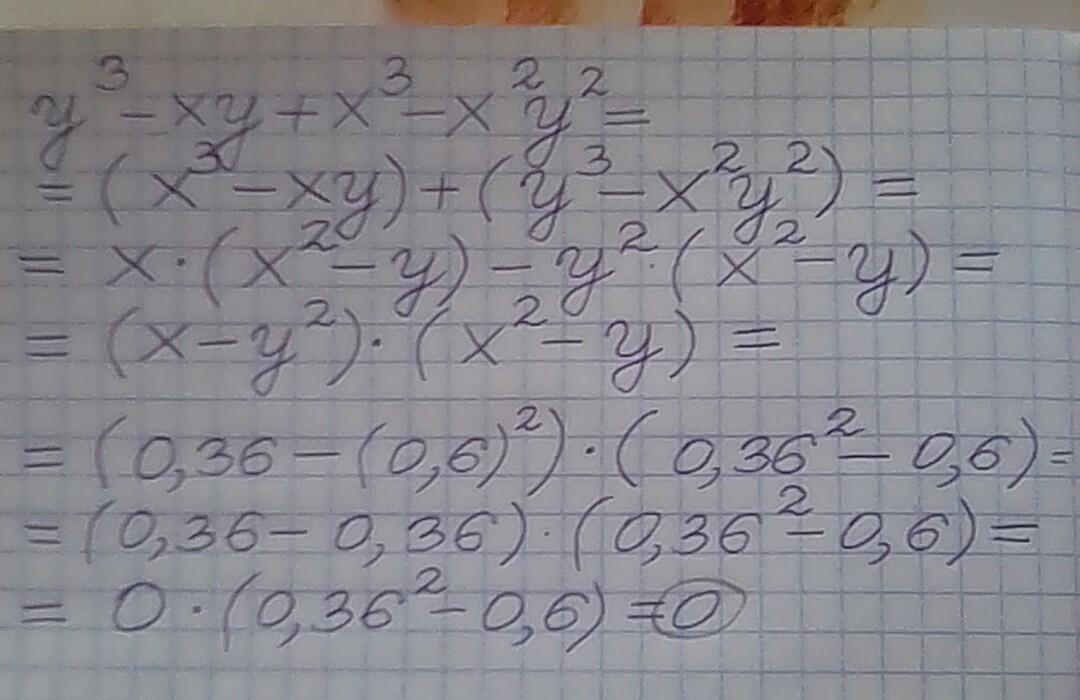 y³ - xy + x³ - x²y² =
= (x³ - xy) + (y³ - x²y²) =
= x · (x² - y) - y² · (x² - y) =
= (x - y²) · (x² - y) =
= (0,36 - (0,6)²) · (0,36² - 0,6) =
= (0,36 - 0,36) · (0,36² - 0,6) =
= 0 · (0,36² - 0,6) = 0